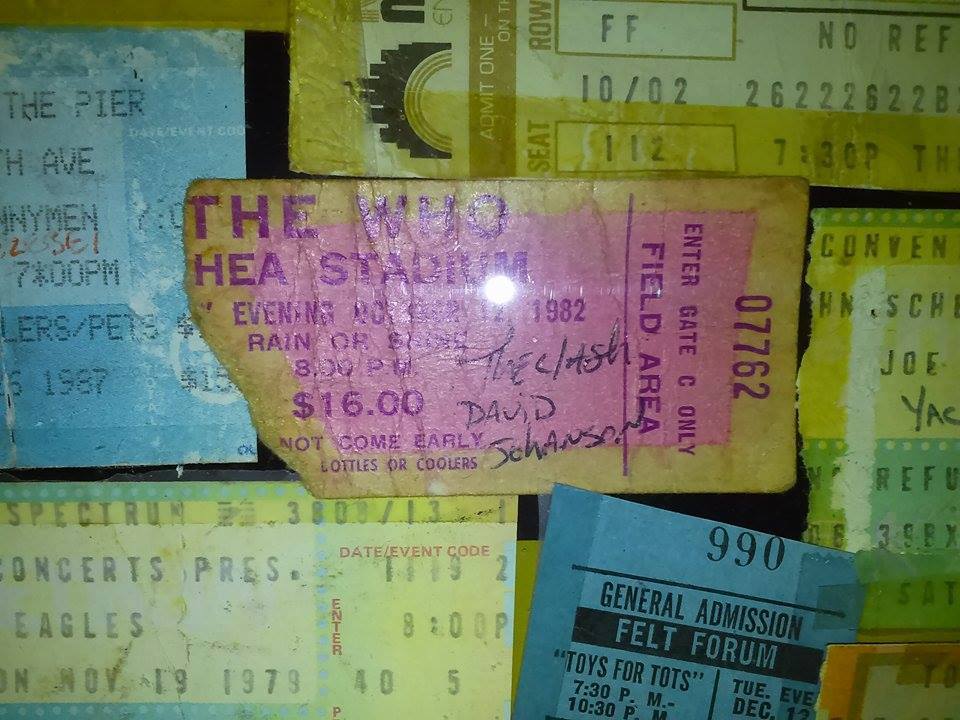 THE PIER
DATE/EVENT COD
TH AVE
NNYMEN 7:0
7*00PM
LERS/PETS $
1987
ADMIT ONE –
ON TH
ROW
FF
NO REF
10/02 26222622B
SEAT
112
7:30P TH
THE WHO
HEA STADIUM
EVENING OCTOBER 12, 1982
RAIN OR SHINE
8:00 P.M.
$16.00
NOT COME EARLY
BOTTLES OR COOLERS
The Clash
DAViD
JohANSON
FIELD AREA
ENTER GATE C ONLY
07762
CONVEN
HN SCHE
JOE
YAC
REFU
SAT
SPECTRUM
3808/13
DATE/EVENT CODE
CONCERTS PRES.
1119 2
EAGLES
ENTER
8:00P
ON NOV 19 1979
40 5
990
GENERAL ADMISSION
FELT FORUM
"TOYS FOR TOTS"
7:30 P. M.-
10:30 P. M.
TUE. EVE
DEC. 12
TO